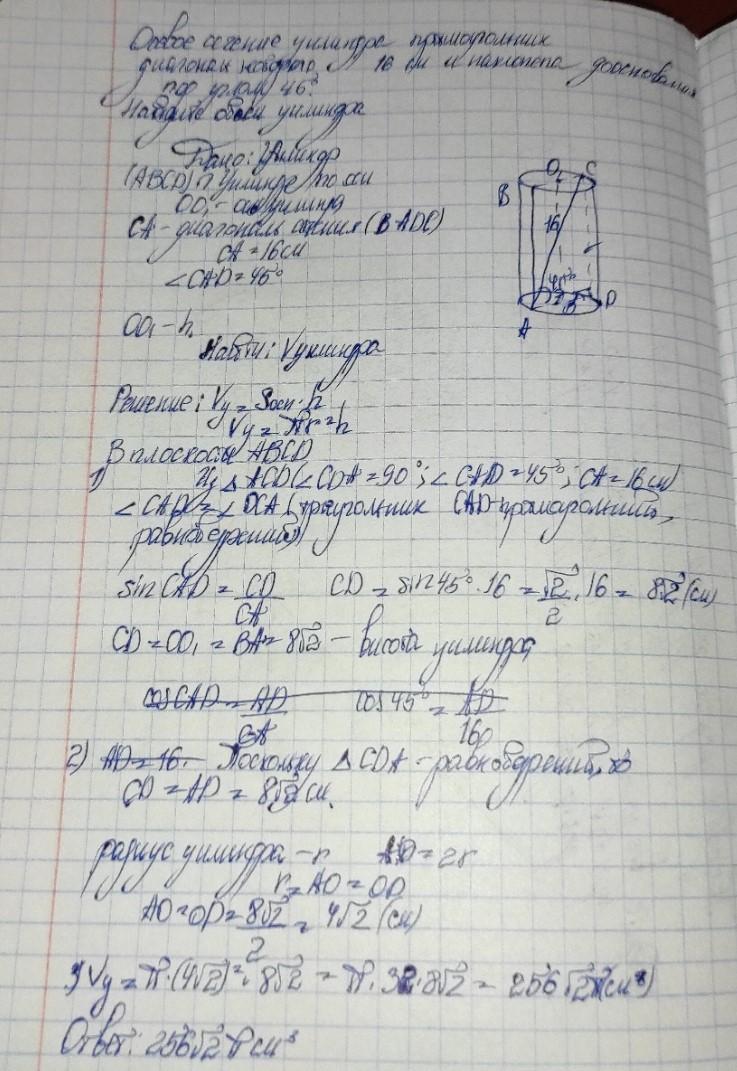 Осевое сечение цилиндра прямоугольник
диагональ которого 16 см и наклонена до основания
под углом 45°.
Найдите объем цилиндра
Дано: Цилиндр
(ABCD) ∩ цилиндр по оси
OO₁ - ось цилиндра
CA - диагональ сечения (BADC)
CA = 16 см
∠CAD = 45°
OO₁ - h.
Найти: Vцилиндра
B O₁ C
16
45°
A D
Решение: Vц = Sосн · h
Vц = πr²h
В плоскости ABCD
1) Из △ ACD (∠CDA = 90°; ∠CAD = 45°; CA = 16 см)
∠CAD = ∠DCA (треугольник CAD прямоугольный,
равнобедренный)
sin CAD = CD/CA CD = sin 45° · 16 = √2/2 · 16 = 8√2 (см)
CD = OO₁ = BA = 8√2 - высота цилиндра
cos CAD = AD/CA cos 45° = AD/16
2) AD = 16. Поскольку △ CDA - равнобедренный, то
CD = AD = 8√2 см.
радиус цилиндра - r AD = 2r
r = AO = OD
AO = OD = 8√2/2 = 4√2 (см)
3) Vц = π · (4√2)² · 8√2 = π · 32 · 8√2 = 256√2π (см³)
Ответ: 256√2 π см³